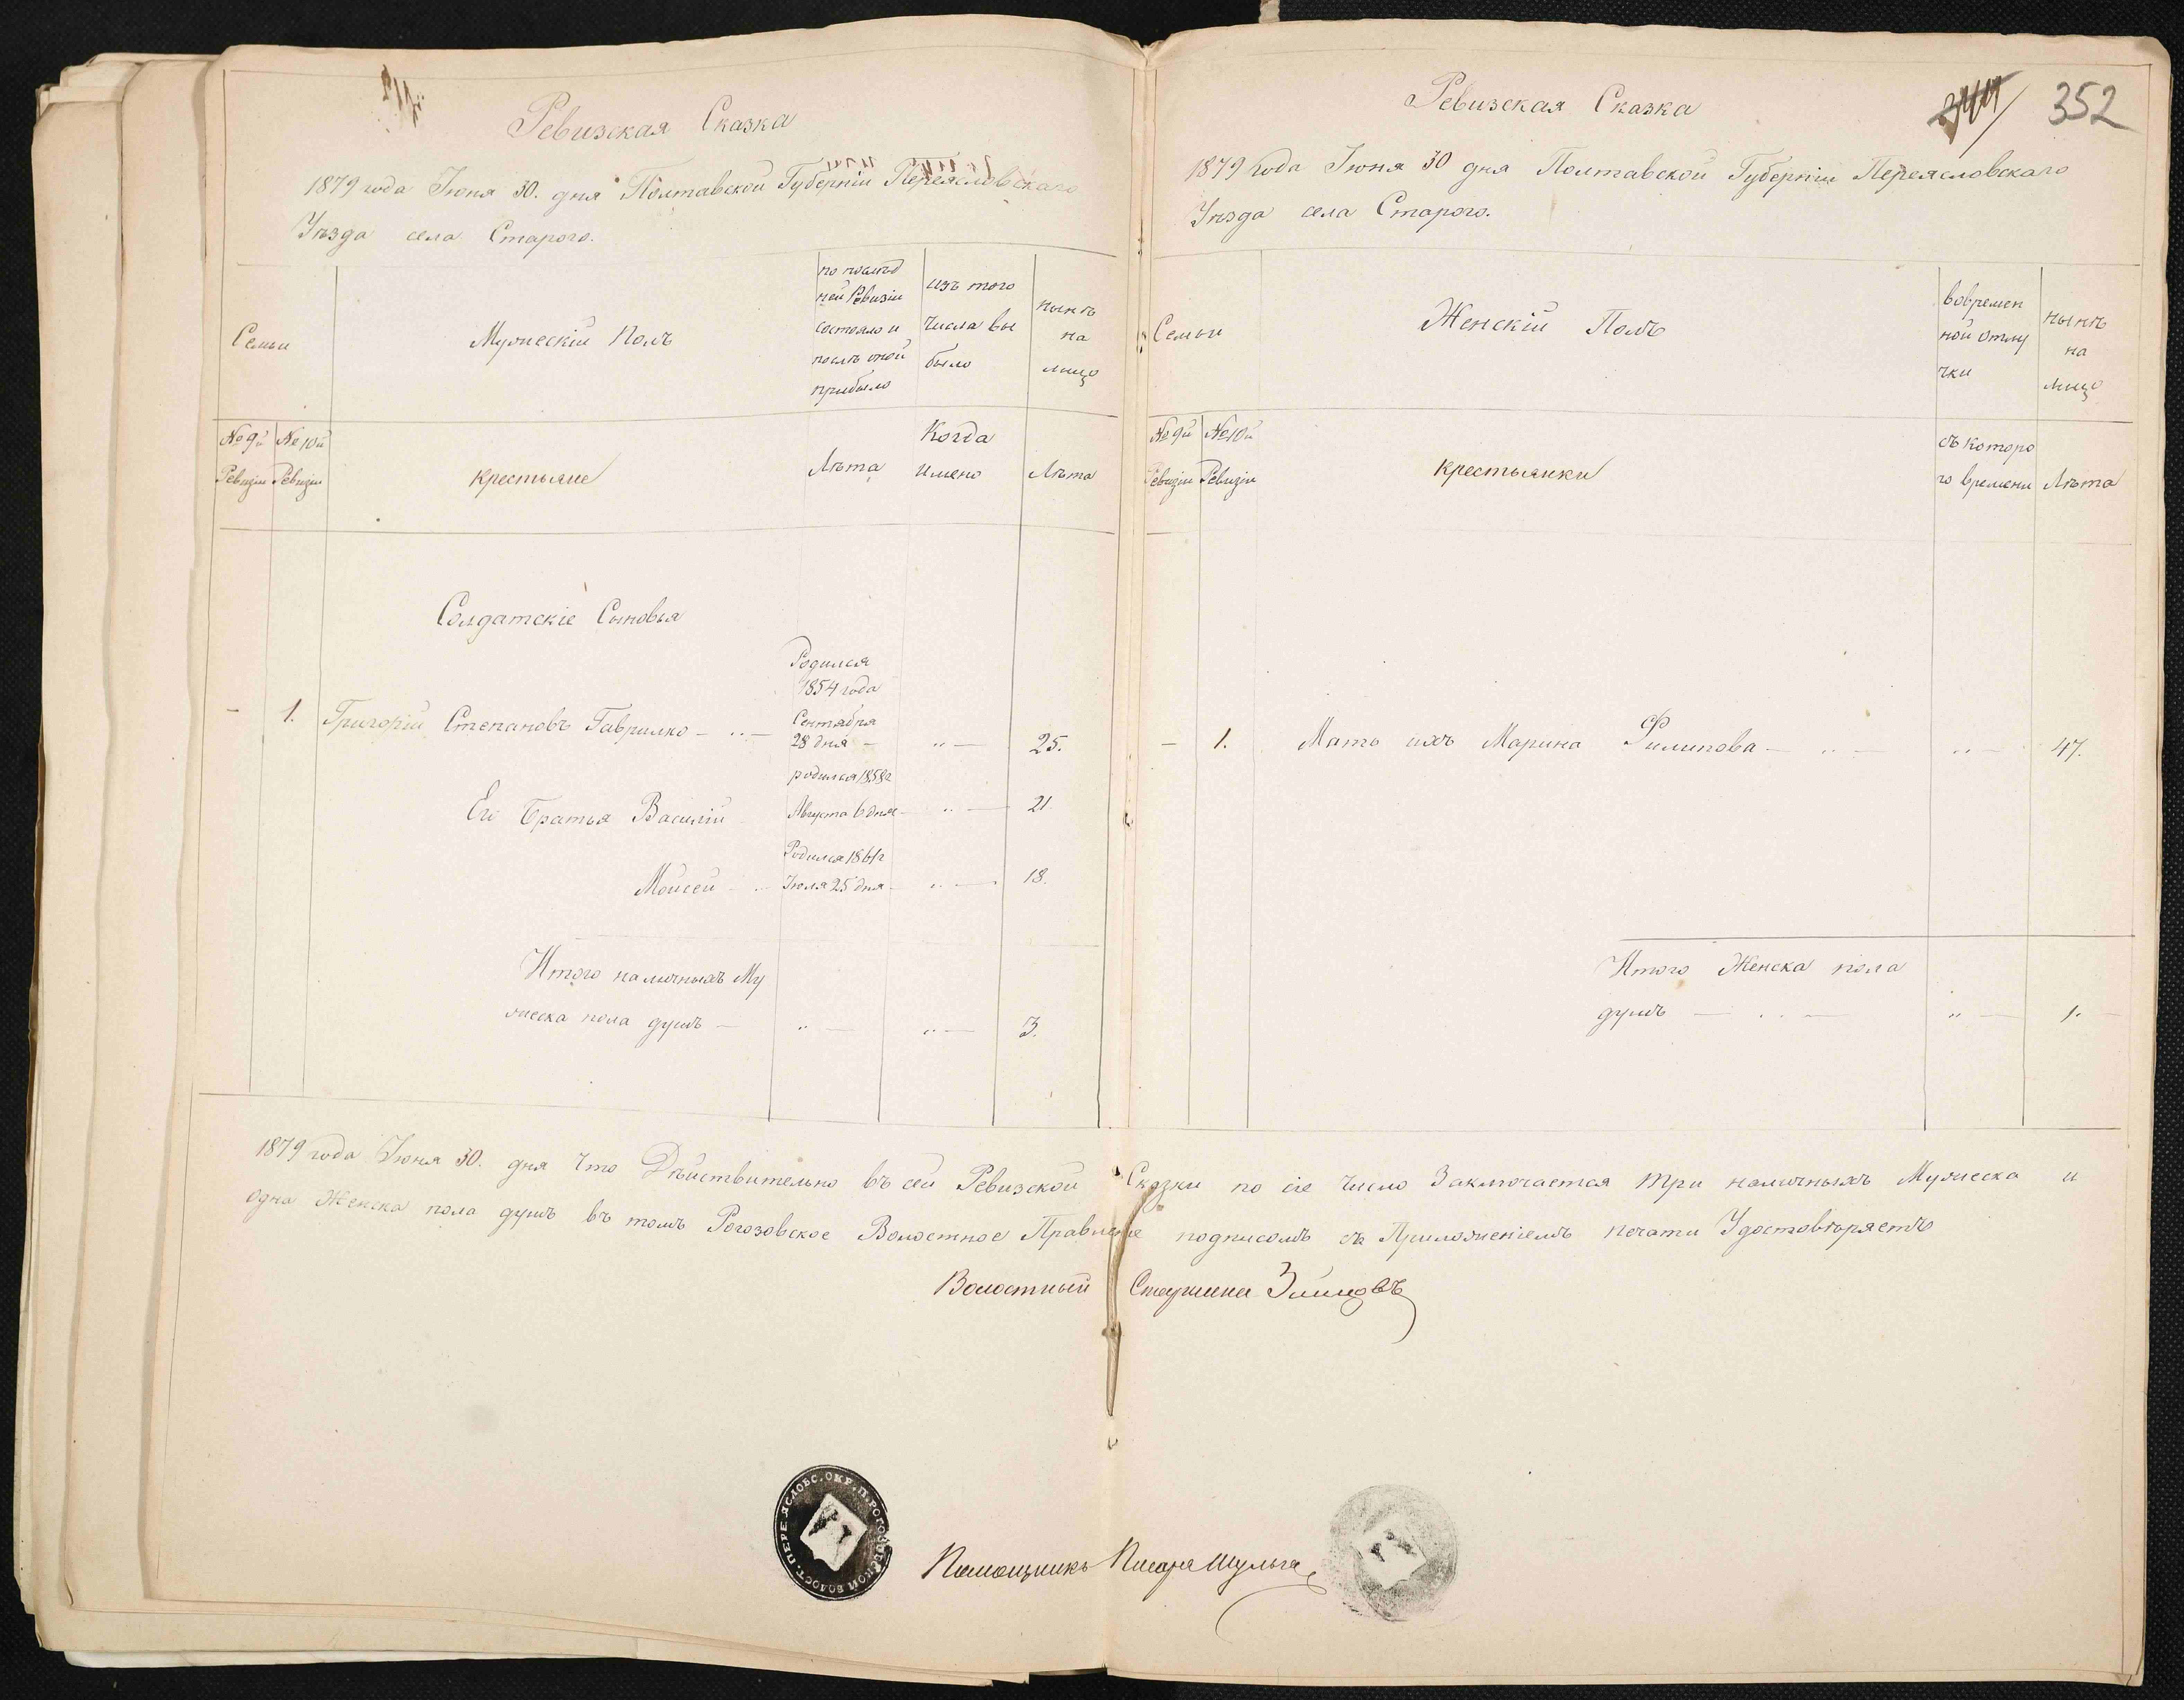 Ревизская Сказка
1879 года Июня 30. дня Полтавской Губерніи Переясловскаго
Уѣзда села Старого.
Семьи
Мужескій Полъ
по послѣд
ней Ревизіи
состояло и
послѣ оной
прибыло
изъ того
числа вы
было
нынѣ
на
лицо
№ 9й
Ревизіи
№ 10й
Ревизіи
крестьяне
Лѣта
Когда
имено
Лѣта
Солдатскіе Сыновья
Родился
1854 года
Сентября
28 дня —
- 1. Григорій Степановъ Гаврилко — .. — .. — 25.
родился 1858г
Его Братья Василій Августа 6 дня — .. — 21.
Родился 1861г
Мойсей - .. Іюля 25 дня — .. — 18.
Итого наличныхъ Му
жеска пола душъ — .. — .. — 3.
Ревизская Сказка
352
1879 года Июня 30 дня Полтавской Губерніи Переясловскаго
Уѣзда села Старого.
Семьи
Женскій Полъ
вовремен
ной отлу
чки
нынѣ
на
лицо
№ 9й
Ревизіи
№ 10й
Ревизіи
крестьянки
съ которо
го времени
Лѣта
— 1. Мать ихъ Марина Филипова — .. — .. — 47.
Итого Женска пола
душъ — .. — .. — 1. —
1879 года Июня 30. дня Что Дѣйствительно въ сей Ревизской Сказки по сіе число Заключается три наличныхъ Мужеска и
одна Женска пола душъ въ томъ Рогозовское Волостное Правленіе подписомъ съ Приложеніемъ печати Удостовѣряетъ
Волостный Старшина
Помощникъ Писаря Шульга
ПЕРЕЯСЛОВС. ОКР. П. РОГОЗОВСКОЙ ВОЛОСТ.